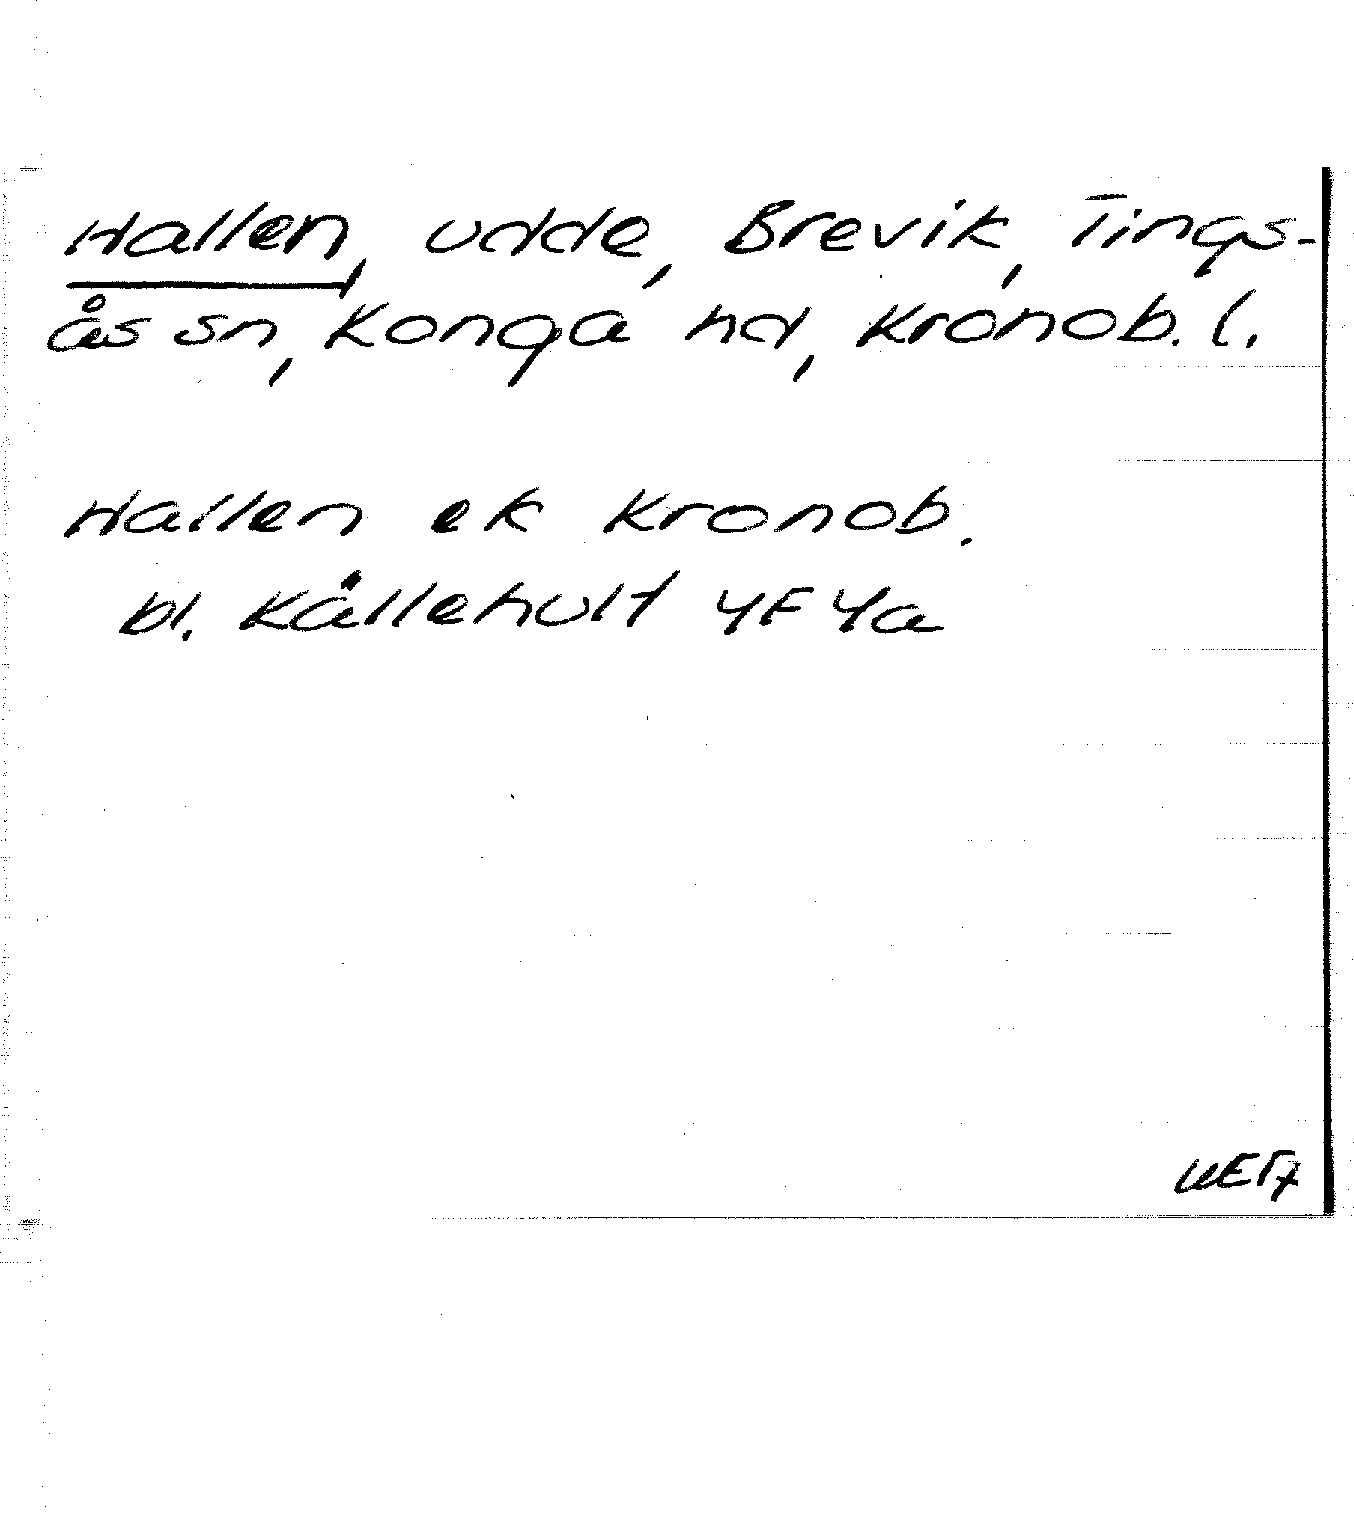 Hallen, udde, Brevik, Tings-
ås sn, Konga hd, Kronob. l.
Hallen ek Kronob.
bl. Kållehult 4F4a